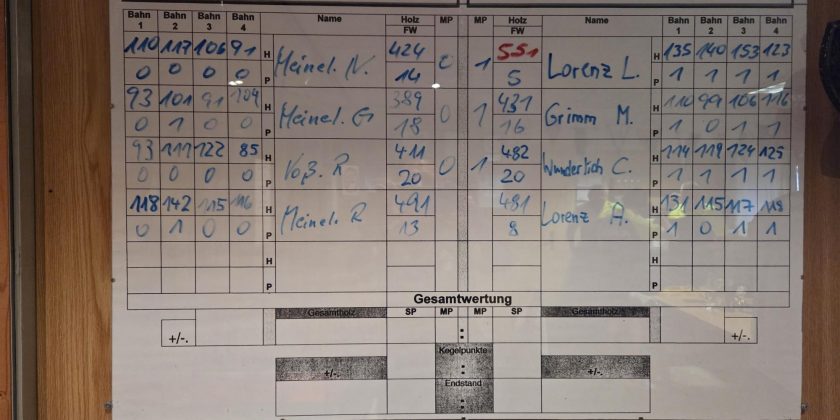 Bahn 1 Bahn 2 Bahn 3 Bahn 4 Name Holz MP MP Holz Name Bahn 1 Bahn 2 Bahn 3 Bahn 4
FW FW
110 117 106 91 H Meinel. N. 424 0 1 551 Lorenz L. H 135 140 153 123
0 0 0 0 P 14 5 P 1 1 1 1
93 101 91 104 H Meinel. G 389 0 1 431 Grimm M. H 110 99 106 116
0 1 0 0 P 18 16 P 1 0 1 1
93 111 122 85 H Voß. R 411 0 1 482 Wunderlich C. H 114 119 124 125
0 0 0 0 P 20 20 P 1 1 1 1
118 142 115 116 H Meinel. R 491 481 Lorenz A. H 131 115 117 118
0 1 0 0 P 13 8 P 1 0 1 1
H H
P P
Gesamtwertung
Gesamtholz SP MP MP SP Gesamtholz
+/-. : +/-.
Kegelpunkte
+/-. : +/-.
Endstand
: